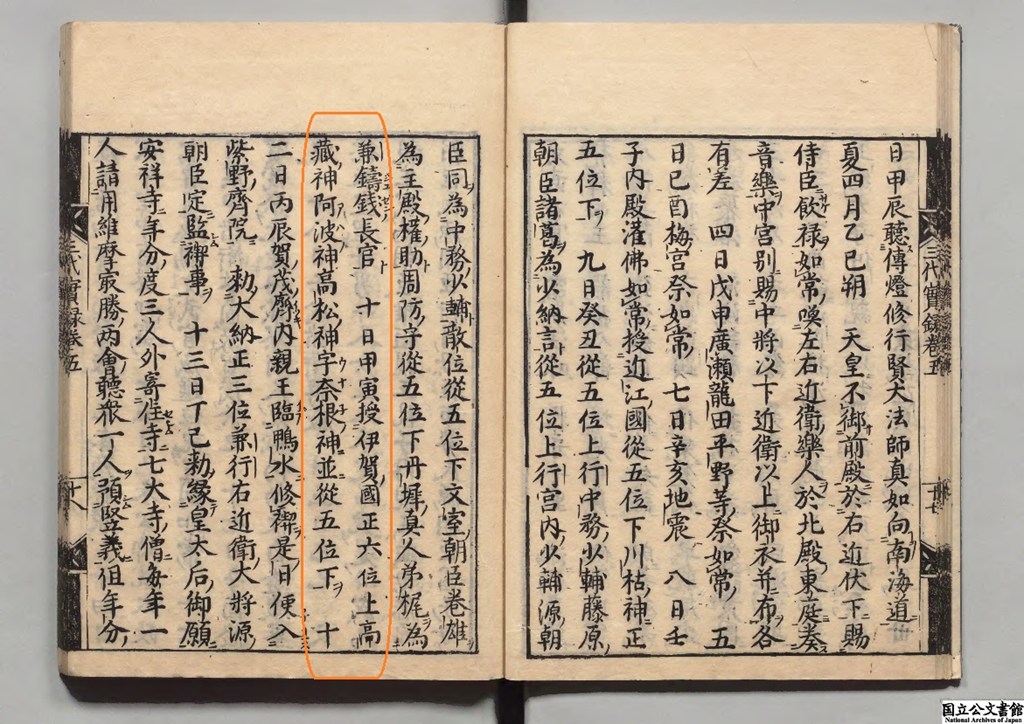 日甲辰聽傳燈修行賢大法師真如向南海道
夏四月乙巳朔 天皇不御前殿於右近伏下賜
侍臣飲祿如常喚左右近衛樂人於北殿東庭奏
音樂中宮別賜中將以下近衛以上御衣并布各
有差 四日戊申廣瀬龍田平野等祭如常 五
日己酉梅宮祭如常 七日辛亥地震 八日壬
子內殿灌佛如常授近江國從五位下川枯神正
五位下 九日癸丑從五位上行中務少輔藤原
朝臣諸葛為少納言從五位上行宮內少輔源朝
三代實録卷五
臣同為中務少輔散位從五位下文室朝臣卷雄
為主殿權助周防守從五位下丹墀真人弟梶為
兼鑄錢長官 十日甲寅授伊賀國正六位上高
藏神阿波神高松神宇奈根神並從五位下 十
二日丙辰賀茂齊內親王臨鴨水修禊是日便入
紫野齊院 勅大納正三位兼行右近衛大將源
朝臣定監禊事 十三日丁巳勅緣皇太后御願
安祥寺年分度三人外寄住寺七大寺僧每年一
人請用維摩最勝兩會聽衆一人預竪義但年分
三代實録卷五
十八
国立公文書館
National Archives of Japan